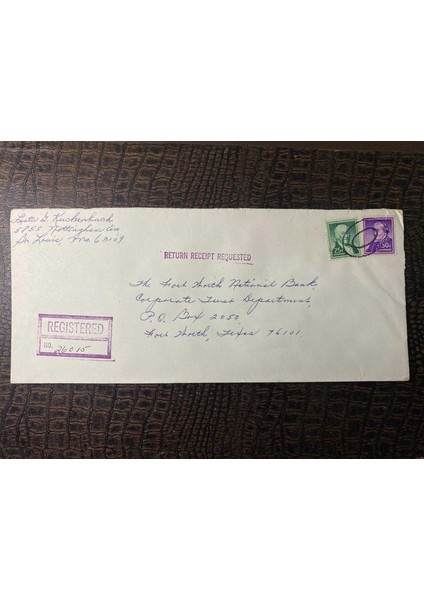 Lester G. Kuckenbuck
5855 Nottingham Ave
St. Louis, Mo. 63109
RETURN RECEIPT REQUESTED
50¢
The Fort Worth National Bank,
Corporate Trust Department,
P.O. Box 2050
Fort Worth, Texas 76101
REGISTERED
NO. 26015